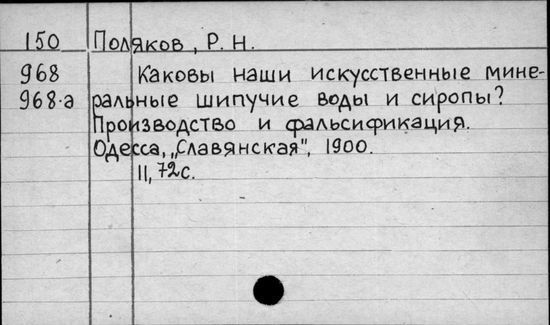 150 Поляков, Р. Н.
968 Каковы наши искусственные мине-
968·а ральные шипучие воды и сиропы?
Производство и фальсификация.
Одесса, „Славянская", 1900.
II, 72 с.